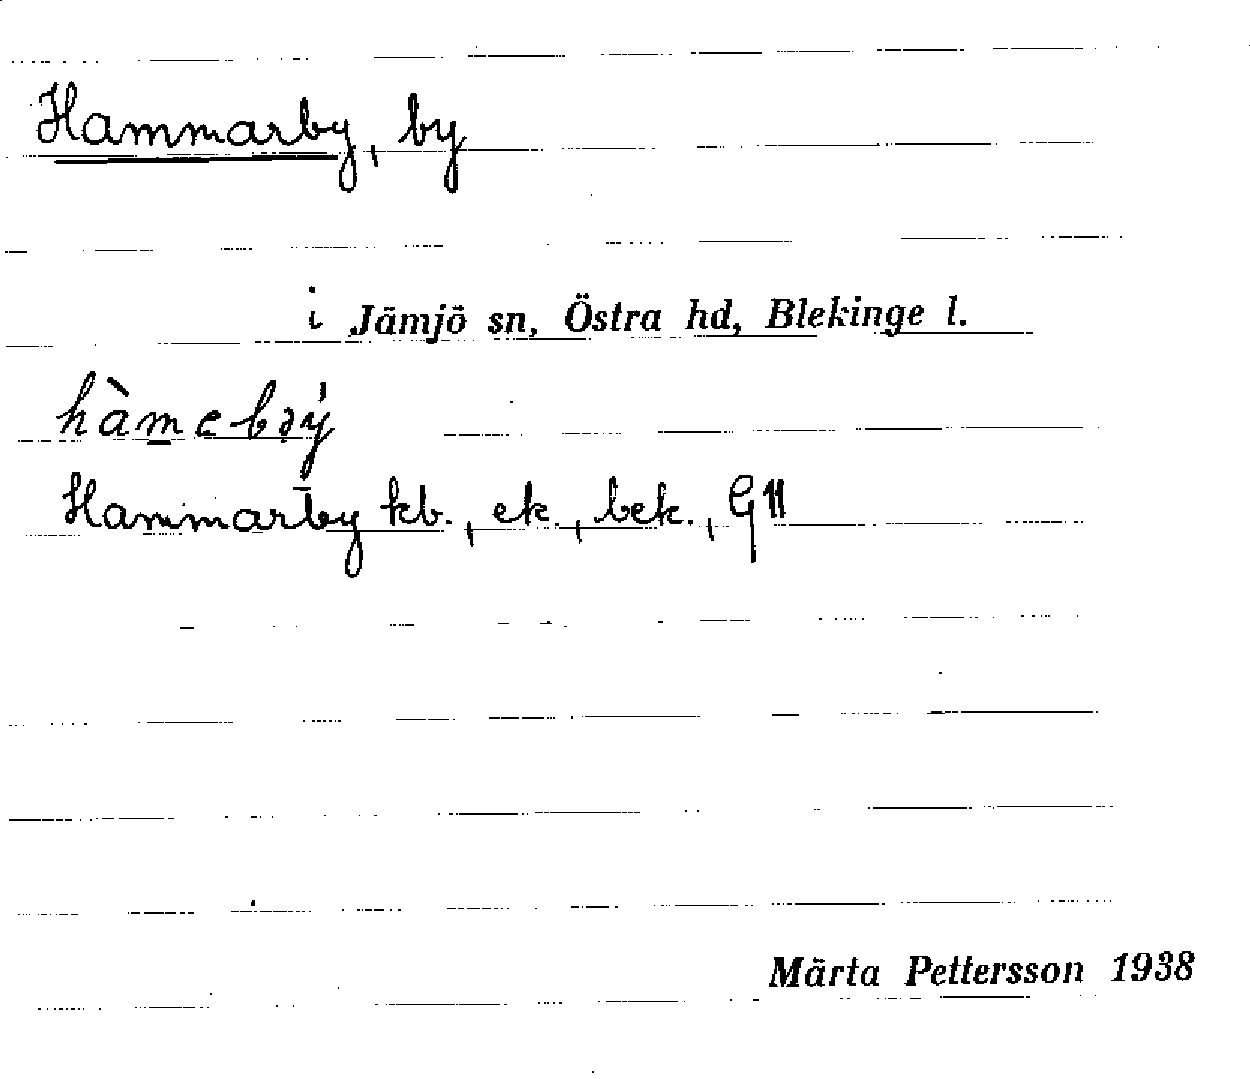 Hammarby, by
i Jämjö sn, Östra hd, Blekinge l.
hàmebəý
Hammarby kb., ek., bek., G11
Märta Pettersson 1938